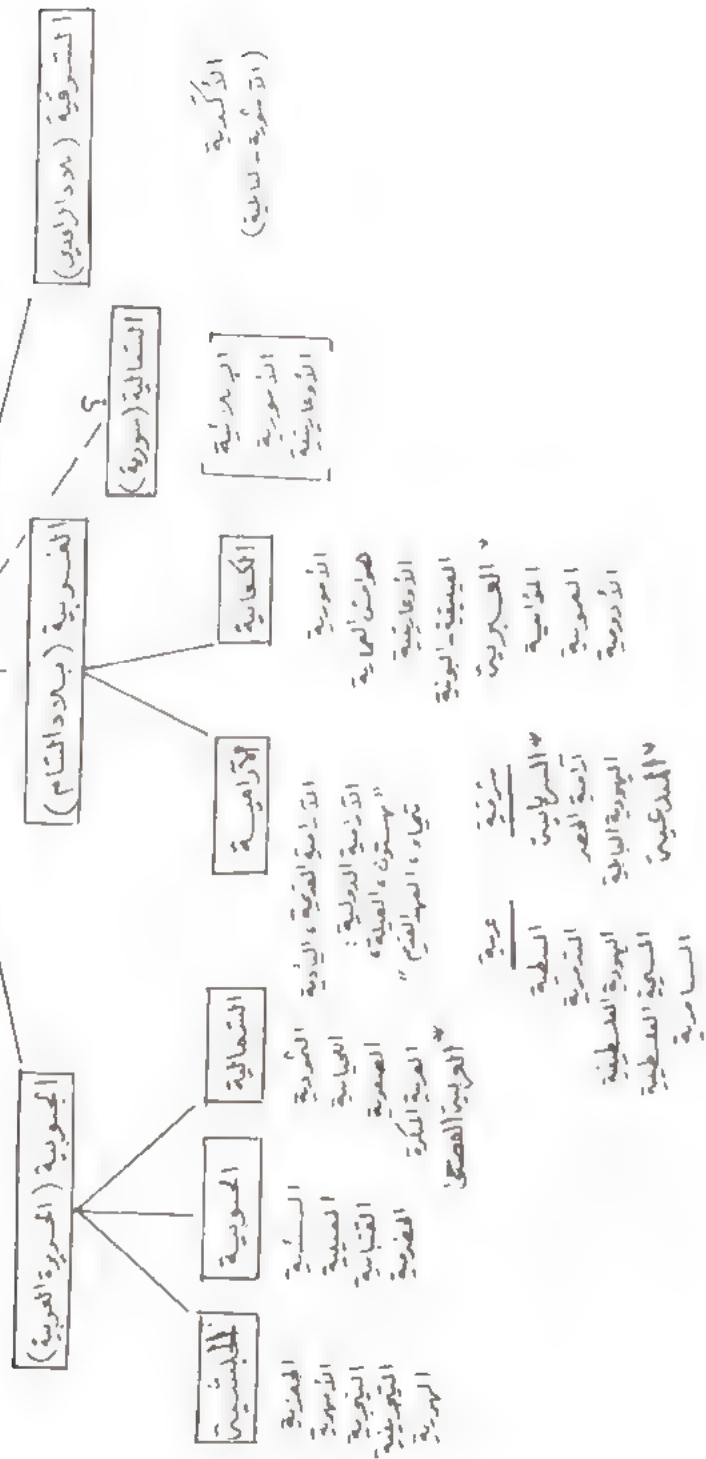 الشرقية (بلاد الرافدين)
الأكدية
(الآشورية - البابلية)
؟
الشمالية (سورية)
الإبلائية
الأمورية
الأوغاريتية
الغربية (بلاد الشام)
الكنعانية
الأمورية
حواشي العمارنة
الأوغاريتية
الفينيقية - البونية
*العبرية
المؤابية
العمونية
الأدومية
الآرامية
الآرامية القديمة، اليأدية
الآرامية الدولية:
"بهستون، الفيلة،
تيماء، العهد القديم"
شرقية
*السريانية
آرامية الحضر
اليهودية البابلية
*المندعية
غربية
النبطية
التدمرية
اليهودية الفلسطينية
المسيحية الفلسطينية
السامرية
الجنوبية (الجزيرة العربية)
الشمالية
الثمودية
اللحيانية
الصفوية
العربية المبكرة
*العربية الفصحى
الجنوبية
السبئية
المعينية
القتبانية
الحضرمية
الحبشية
الجعزية
الأمهرية
التيجرية
التيجرينية
الهررية